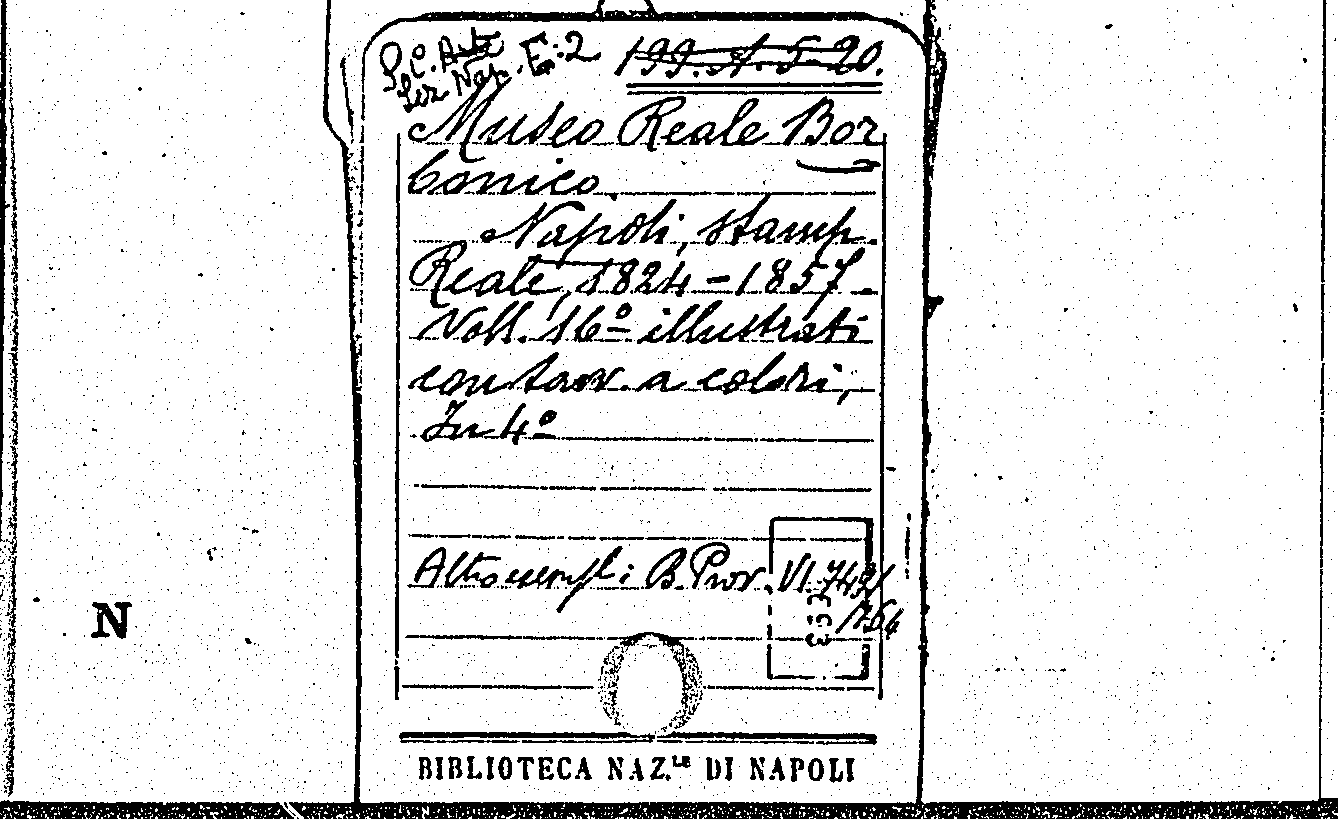 S.C. Arte E:2 199.A.5-20.
Sez Nap.
Museo Reale Bor
bonico.
Napoli, stamp.
Reale, 1824-1857.
Voll. 16º illustrati
con tavv. a colori,
In 4º
Altro esempl: B. Prov. VI. 749/
/764
N
BIBLIOTECA NAZ.LE DI NAPOLI